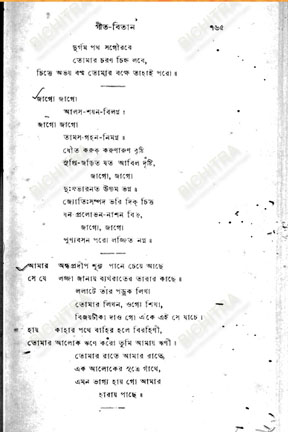 গীত-বিতান ৭৬৫
দুর্গম পথ সগৌরবে
তোমার চরণ চিহ্ন লবে,
চিত্তে অভয় বর্ম্ম তোমার বক্ষে তাহাই পরো॥
জাগো জাগো
আলস-শয়ন-বিলগ্ন।
জাগো জাগো
তামস-গহন-নিমগ্ন॥
ধৌত করুক্ করুণারুণ বৃষ্টি
সুপ্তি-জড়িত যত আবিল দৃষ্টি,
জাগো, জাগো
দুঃখভারনত উদ্যম ভগ্ন॥
জ্যোতিঃসম্পদ ভরি দিক্ চিত্ত
ধন প্রলোভন-নাশন বিত্ত,
জাগো, জাগো,
পুণ্যবসন পরো লজ্জিত নগ্ন॥
আমার অন্ধপ্রদীপ শূন্য পানে চেয়ে আছে
সে যে লজ্জা জানায় ব্যর্থরাতের তারার কাছে॥
ললাটে তাঁর পড়ুক লিখা
তোমার লিখন, ওগো শিখা,
বিজয়টীকা দাও গো এঁকে এই সে যাচে।
হায় কাহার পথে বাহির হলে বিরহিণী,
তোমার আলোক ঋণে করো তুমি আমায় ঋণী।
তোমার রাতে আমার রাতে,
এক আলোকের সূত্রে গাঁথে,
এমন ভাগ্য হায় গো আমার
হারায় পাছে॥
BICHITRA
BICHITRA
BICHITRA
BICHITRA